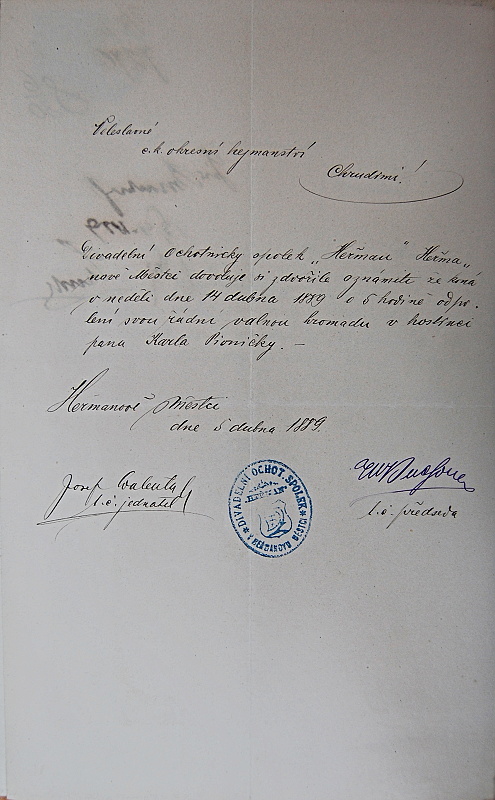 Veleslavné
c. k. okresní hejmanství
Chrudimi!
Divadelní Ochotnický spolek „Heřman" Heřma„
nově Městci dovoluje si zdvořile oznámiti že koná
v neděli dne 14 dubna 1889 o 5 hodině odpo.
lení svou řádní valnou hromadu v hostinci
pana Karla Pivničky. —
Heřmanově Městci
dne 5 dubna 1889.
Josef
t. č. jednatel
DIVADELNÍ OCHOT. SPOLEK
"HEŘMAN"
V HEŘMANOVU MĚSTCI
t. č. předseda